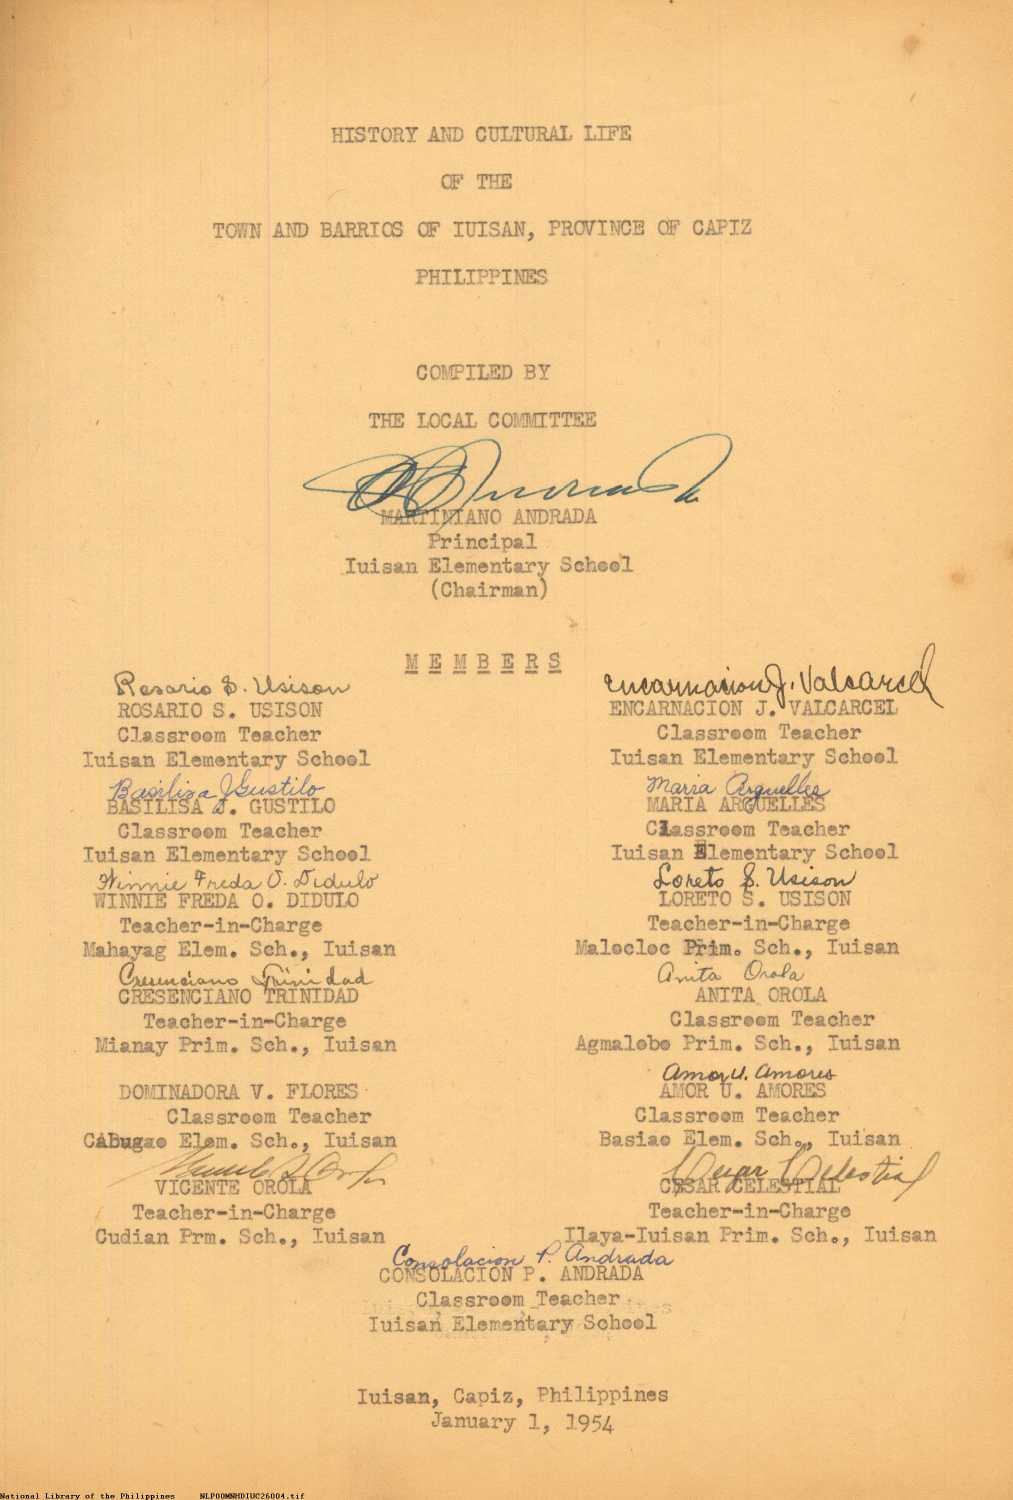 HISTORY AND CULTURAL LIFE
OF THE
TOWN AND BARRIOS OF IUISAN, PROVINCE OF CAPIZ
PHILIPPINES
COMPILED BY
THE LOCAL COMMITTEE
MARTINIANO ANDRADA
Principal
Iuisan Elementary School
(Chairman)
M E M B E R S
Rosario S. Usison
ROSARIO S. USISON
Classroom Teacher
Iuisan Elementary School
Basilisa J Gustilo
BASILISA J. GUSTILO
Classroom Teacher
Iuisan Elementary School
Winnie Freda O. Didulo
WINNIE FREDA O. DIDULO
Teacher-in-Charge
Mahayag Elem. Sch., Iuisan
Cresenciano Trinidad
CRESENCIANO TRINIDAD
Teacher-in-Charge
Mianay Prim. Sch., Iuisan
DOMINADORA V. FLORES
Classroom Teacher
CABugao Elem. Sch., Iuisan
VICENTE OROLA
Teacher-in-Charge
Cudian Prm. Sch., Iuisan
Encarnacion J. Valcarcel
ENCARNACION J. VALCARCEL
Classroom Teacher
Iuisan Elementary School
Maria Arguelles
MARIA ARGUELLES
Classroom Teacher
Iuisan Elementary School
Loreto S. Usison
LORETO S. USISON
Teacher-in-Charge
Malocloc Prim. Sch., Iuisan
Anita Orola
ANITA OROLA
Classroom Teacher
Agmalobo Prim. Sch., Iuisan
Amor U. Amores
AMOR U. AMORES
Classroom Teacher
Basiao Elem. Sch., Iuisan
Cesar Celestial
CESAR CELESTIAL
Teacher-in-Charge
Ilaya-Iuisan Prim. Sch., Iuisan
Consolacion P. Andrada
CONSOLACION P. ANDRADA
Classroom Teacher
Iuisan Elementary School
Iuisan, Capiz, Philippines
January 1, 1954
National Library of the Philippines NLP00MNHDIUC26004.tif